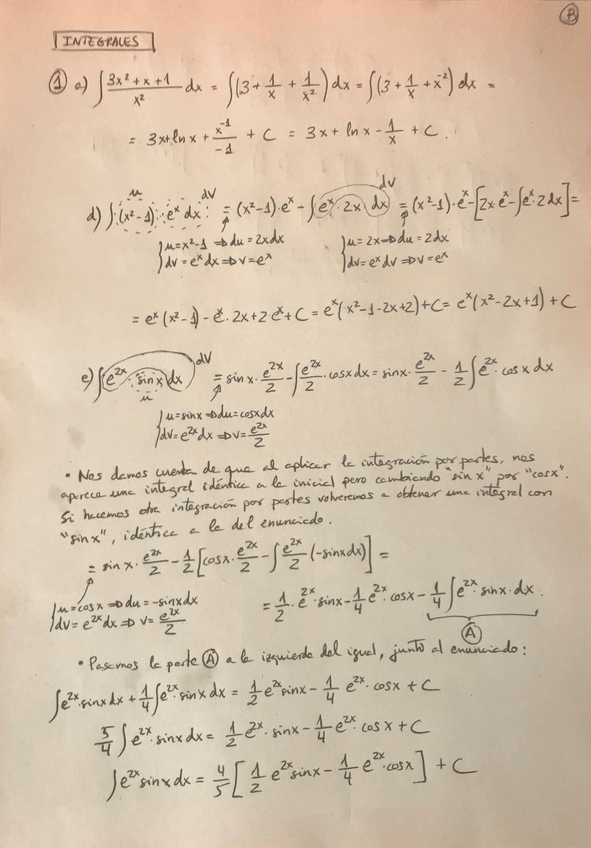 B
INTEGRALES
① a) ∫ (3x² + x + 1)/x² dx = ∫(3 + 1/x + 1/x²) dx = ∫(3 + 1/x + x⁻²) dx =
= 3x + ln x + x⁻¹/-1 + C = 3x + ln x - 1/x + C.
u dV dV
d) ∫(x²-1)·eˣ dx = (x²-1)·eˣ - ∫eˣ·2x dx = (x²-1)·eˣ - [2x·eˣ - ∫eˣ·2dx] =
{u = x²-1 ⇒ du = 2xdx {u = 2x ⇒ du = 2dx
{dv = eˣdx ⇒ v = eˣ {dv = eˣdv ⇒ v = eˣ
= eˣ(x²-1) - eˣ·2x + 2eˣ + C = eˣ(x²-1-2x+2) + C = eˣ(x²-2x+1) + C
dV
e) ∫e²ˣ·sinx dx = sinx·e²ˣ/2 - ∫e²ˣ/2·cosx dx = sinx·e²ˣ/2 - 1/2 ∫e²ˣ·cosx dx
u
{u = sinx ⇒ du = cosxdx
{dv = e²ˣdx ⇒ v = e²ˣ/2
• Nos damos cuenta de que al aplicar la integración por partes, nos
aparece una integral idéntica a la inicial pero cambiando "sin x" por "cosx".
Si hacemos otra integración por partes volveremos a obtener una integral con
"sin x", idéntica a la del enunciado.
= sin x·e²ˣ/2 - 1/2 [cosx·e²ˣ/2 - ∫e²ˣ/2 (-sinxdx)] =
{u = cosx ⇒ du = -sinxdx
{dv = e²ˣdx ⇒ v = e²ˣ/2
= 1/2·e²ˣ·sinx - 1/4 e²ˣ·cosx - 1/4 ∫e²ˣ·sinx·dx.
Ⓐ
• Pasamos la parte Ⓐ a la izquierda del igual, junto al enunciado:
∫e²ˣ·sinx dx + 1/4 ∫e²ˣ·sinx dx = 1/2 e²ˣsinx - 1/4 e²ˣ·cosx + C
5/4 ∫e²ˣ·sinx dx = 1/2 e²ˣ·sinx - 1/4 e²ˣ·cosx + C
∫e²ˣsinx dx = 4/5 [1/2 e²ˣsinx - 1/4 e²ˣ·cosx] + C